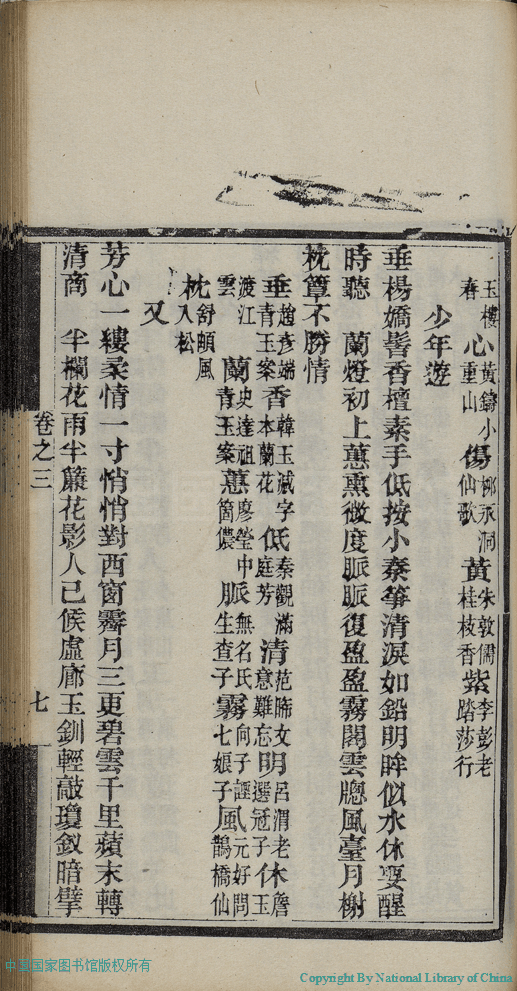 玉樓春心黃鑄小重山傷柳永洞仙歌黃朱敦儒桂枝香紫李彭老踏莎行
少年遊
垂楊嬌髻香檀素手低按小秦箏清淚如鉛明眸似水休要醒
時聽　蘭燈初上蕙熏微度脈脈復盈盈霧閣雲牕風臺月榭
枕簟不勝情
垂趙彥端青玉案香韓玉減字木蘭花低秦觀滿庭芳清范晞文意難忘明呂渭老選冠子休詹玉
渡江雲蘭史達祖青玉案蕙廖瑩中箇儂脈無名氏生查子霧向子諲七娘子風元好問鵲橋仙
枕舒頔風入松
又
芳心一縷柔情一寸悄悄對西窗霽月三更碧雲千里蘋末轉
清商　半欄花雨半簾花影人已候虛廊玉釧輕敲瓊釵暗擘
卷之三　七
中国国家图书馆版权所有
Copyright By National Library of China